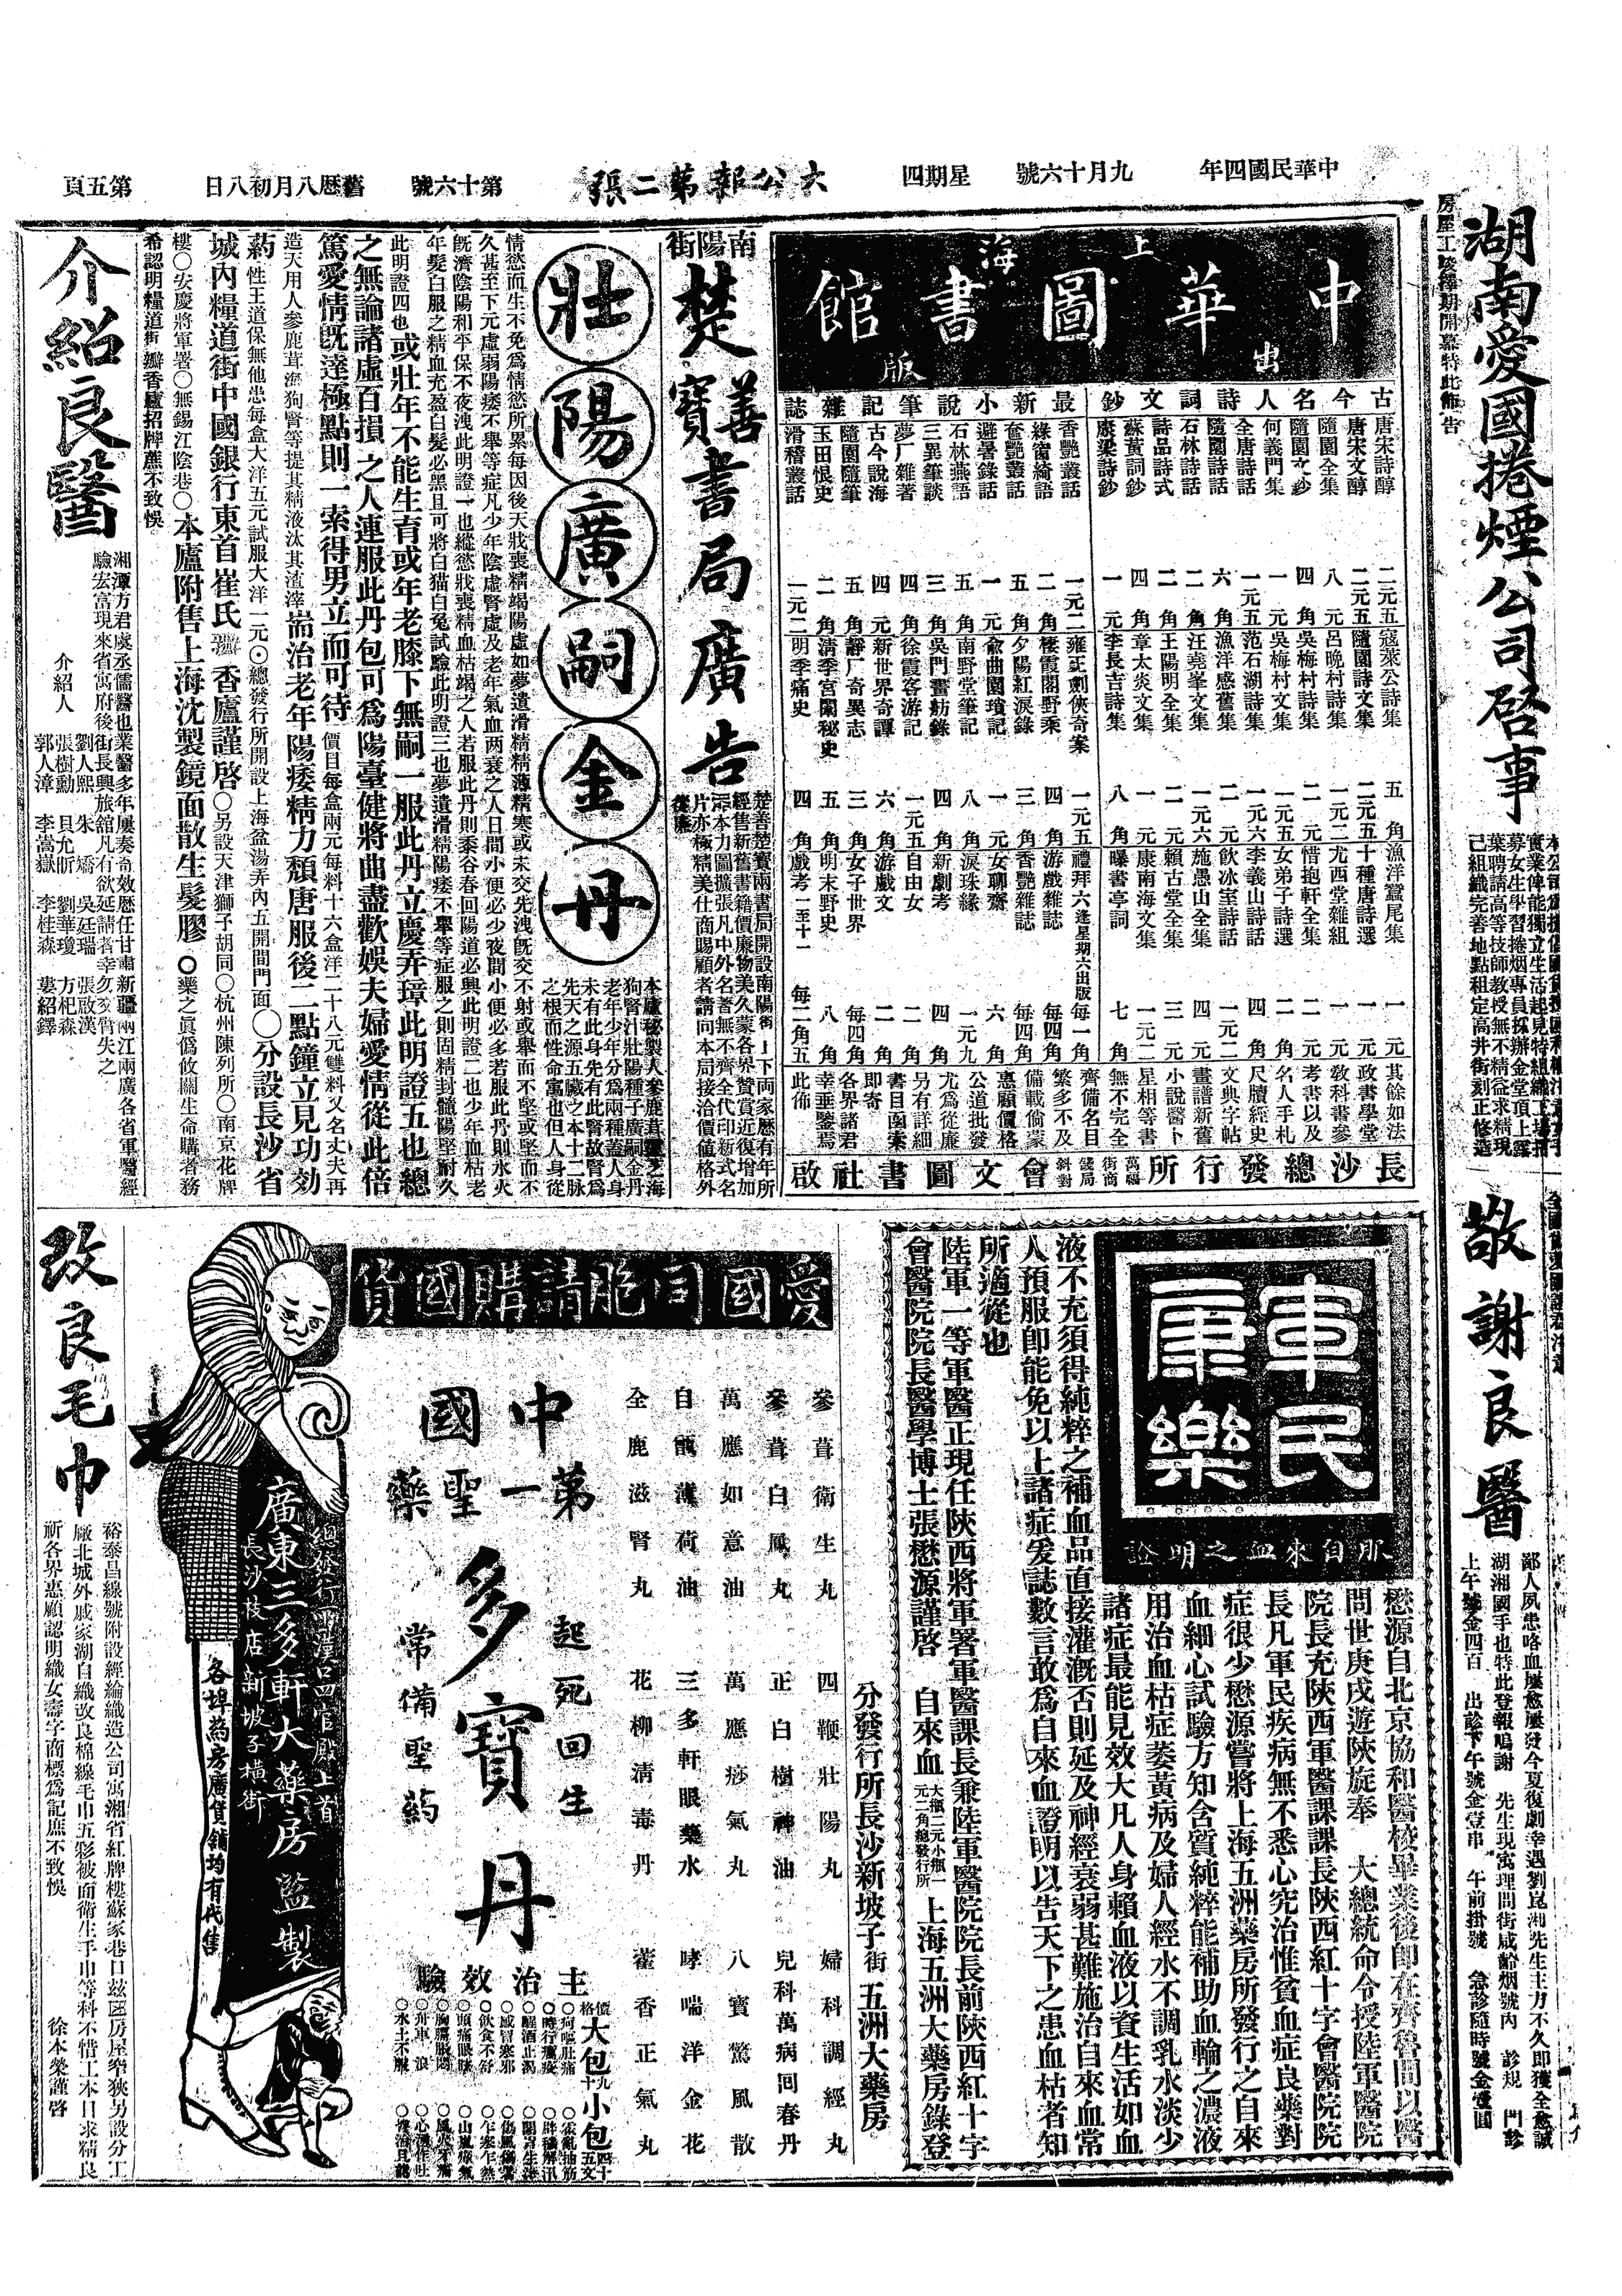 中華民國四年
九月十六號
星期四
大公報第二張
第十六號
舊曆八月初八日
第五頁
湖南愛國捲煙公司啓事
房屋工竣擇期開幕特此佈告
敬謝良醫
鄙人夙患咯血屢愈屢發今夏復劇幸遇劉崑湘先生主力不久即獲全愈誠
湖湘國手也特此登報鳴謝　先生現寓理問街咸齡烟號內　診規　門診
上午號金四百　出診下午號金壹串　午前掛號　急診隨時號金壹圓
上海
中華圖書館
出版
古今名人詩詞文鈔
唐宋詩醇　二元五
唐宋文醇　二元五
隨園全集　八元
隨園文鈔　四角
何義門集　一元
全唐詩話　一元五
隨園詩話　六角
石林詩話　二角
詩品詩式　二角
蘇黃詞鈔　四角
康梁詩鈔　一元
寇萊公詩集　五角
隨園詩文集　二元五
呂晚村詩集　一元二
吳梅村詩集　二元
吳梅村文集　一元五
范石湖詩集　一元六
漁洋感舊集　二元
汪堯峯文集　一元六
王陽明全集　二元
章太炎文集　一元
李長吉詩集　八角
漁洋蠶尾集　一元
十種唐詩選　一元
尤西堂雜組　二元
惜抱軒全集　二元
女弟子詩選　四角
李義山詩話　二角
飲冰室詩話　一元二
施愚山全集　四元
賴古堂全集　三元
康南海文集　一元二
曝書亭詞　七角
最新小說筆記雜誌
香艷叢話　一元二
綠窗綺語　二角
奩艷叢話　五角
避暑錄話　一元
石林燕語　五角
三異筆談　三角
夢厂雜著　四角
古今說海　四元
隨園隨筆　五角
玉田恨史　二角
滑稽叢話　一元二
雍正劍俠奇案　一元五
棲霞閣野乘　四角
夕陽紅淚錄　三角
兪曲園瑣記　一元
南野堂筆記　八角
吳門畫舫錄　四角
徐霞客游記　一元五
新世界奇譚　六角
靜厂奇異志　三角
淸季宮闈秘史　五角
明季痛史　四角
禮拜六逢星期六出版　每一角
游戲雜誌　每四角
香艷雜誌　每四角
女聊齋　六角
淚珠緣　一元九
新劇考　四角
自由女　二角
游戲文　二角
女子世界　每四角
明末野史　八角
戲考一至十一　每二角五
其餘如法
政書學堂
敎科書參
考書以及
名人手札
尺牘經史
文與字帖
畫譜新舊
小說醫卜
星相等書
無不完全
齊備名目
繁多不及
備載倘蒙
惠顧價格
公道批發
尤爲從廉
另有詳細
書目函索
即寄
各界諸君
幸垂鑒焉
此佈
長沙總發行所
會文圖書社啟
南陽街
楚善寶書局廣告
楚善楚寶兩書局開設南陽街上下兩家歷有年所
經售新舊書籍價廉物美久蒙各界贊賞近復增加
本力圖擴張凡中外名著無不齊全代印新式名
片亦極精美仕商賜顧者請向本局接洽價值格外
從廉
壯陽廣嗣金丹
本廬秘製人參鹿茸黨之海
狗腎汁壯陽種子廣嗣金丹
老年少年分爲兩種蓋人身
未有此身先有此腎故腎爲
先天之源五臟之本十二脉
之根而性命寓也但人身從
情慾而生不免爲情慾所累每因後天戕喪精竭陽虛如夢遺滑精精薄精寒或未交先洩旣交不射或舉而不堅或堅而不
久甚至下元虛弱陽痿不舉等症凡少年陰虛腎虛及老年氣血两衰之人日間小便必少夜間小便必多若服此丹則水火
旣濟陰陽和平保不夜洩此明證一也縱慾戕喪精血枯竭之人若服此丹則黍谷春回陽道必興此明證二也少年血枯老
年髮白服之精血充盈白髮必黑且可將白猫白兔試驗此明證三也夢遺滑精陽痿不舉等症服之則固精封髓陽堅耐久
此明證四也或壯年不能生育或年老膝下無嗣一服此丹立慶弄璋此明證五也總
之無論諸虛百損之人連服此丹包可爲陽臺健將曲盡歡娛夫婦愛情從此倍
篤愛情旣達極點則一索得男立而可待　價目每盒兩元每料十六盒洋二十八元雙料又名丈夫再
造天用人參鹿茸海狗腎等提其精液汰其渣滓耑治老年陽痿精力頹唐服後二點鐘立見功効
藥性王道保無他患每盒大洋五元試服大洋一元⊙總發行所開設上海盆湯弄內五開間門面◯分設長沙省
城內糧道街中國銀行東首崔氏瓣香廬謹啓○另設天津獅子胡同○杭州陳列所○南京花牌
樓○安慶將軍署○無錫江陰巷○本廬附售上海沈製鏡面散生髮膠○藥之眞僞攸關生命購者務
希認明糧道街瓣香廬招牌庶不致悞
介紹良醫
湘潭方君虞丞儒醫也業醫多年屢奏奇效歷任甘肅新疆兩江兩廣各省軍醫經
驗宏富現來省寓府後街長興旅舘凡有欲延請者幸勿交臂失之
介紹人
劉人熙　朱矞　吳廷瑞　張啟漢
張樹勳　貝允昕　劉華瓊　方杞森
郭人漳　李嵩嶽　李桂森　婁紹鐸
軍民康樂
自來血之明證
懋源自北京協和醫校畢業後即在齊魯間以醫
問世庚戌遊陜旋奉　大總統命令授陸軍醫院
院長充陜西軍醫課課長陜西紅十字會醫院院
長凡軍民疾病無不悉心究治惟貧血症良藥對
症很少懋源嘗將上海五洲藥房所發行之自來
血細心試驗方知含質純粹能補助血輪之濃液
用治血枯症萎黃病及婦人經水不調乳水淡少
諸症最能見效大凡人身賴血液以資生活如血
液不充須得純粹之補血品直接灌溉否則延及神經衰弱甚難施治自來血常
人預服即能免以上諸症爰誌數言敢爲自來血證明以告天下之患血枯者知
所適從也
陸軍一等軍醫正現任陜西將軍署軍醫課長兼陸軍醫院院長前陜西紅十字
會醫院院長醫學博士張懋源謹啓　自來血　大瓶二元小瓶一元二角總發行所　上海五洲大藥房錄登
分發行所長沙新坡子街五洲大藥房
愛國同胞請購國貨
參茸衛生丸　四鞭壯陽丸　婦科調經丸
參茸白鳳丸　正白樹神油　兒科萬病回春丹
萬應如意油　萬應痧氣丸　八寶驚風散
自製薄荷油　三多軒眼藥水　哮喘洋金花
全鹿滋腎丸　花柳淸毒丹　藿香正氣丸
中國
第一聖藥
多寶丹
起死回生
常備聖药
主治效驗
價格大包九十小包四十五文
總發行漢口四官殿上首
廣東三多軒大藥房監製
長沙枝店新坡子橫街
各埠药房廣貨舖均有代售
改良毛巾
裕泰昌線號附設經綸織造公司寓湘省紅牌樓蘇家巷口玆因房屋窄狹另設分工
厰北城外戚家湖自織改良棉線毛巾五彩被面衛生手巾等科不惜工本日求精良
祈各界惠顧認明織女壽字商標爲記庶不致悞
徐本榮謹啓